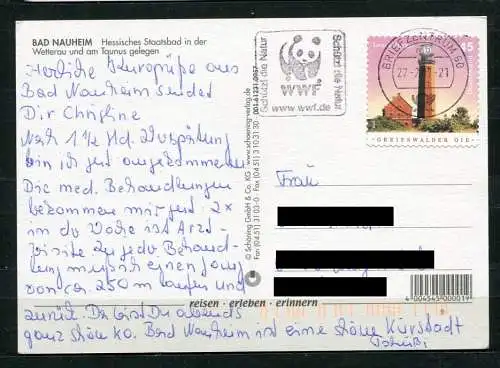 BAD NAUHEIM Hessisches Staatsbad in der
Wetterau und am Taunus gelegen
Herzliche Kurgrüße aus
Bad Nauheim sendet
Dir Christine
Nach 1 1/2 Std. Verspätung
bin ich gut angekommen
Die med. Behandlungen
bekommen mir gut. 2x
in der Woche ist Arzt-
visite. Zu jeder Behand-
lung muß ich einen Gang
von ca. 250 m laufen und
zurück. Da bist Du abends
ganz schön ko. Bad Nauheim ist eine schöne Kurstadt
Tschüßi
© Schöning GmbH & Co. KG · www.schoening-verlag.de
Tel. (04 51) 3 10 31-0 · Fax (04 51) 3 10 31 30
reisen · erleben · erinnern
Schützt die Natur
WWF
www.wwf.de
Schützt die Natur
BRIEFZENTRUM 60
45
GREIFSWALDER OIE
Frau
4 004545 000019